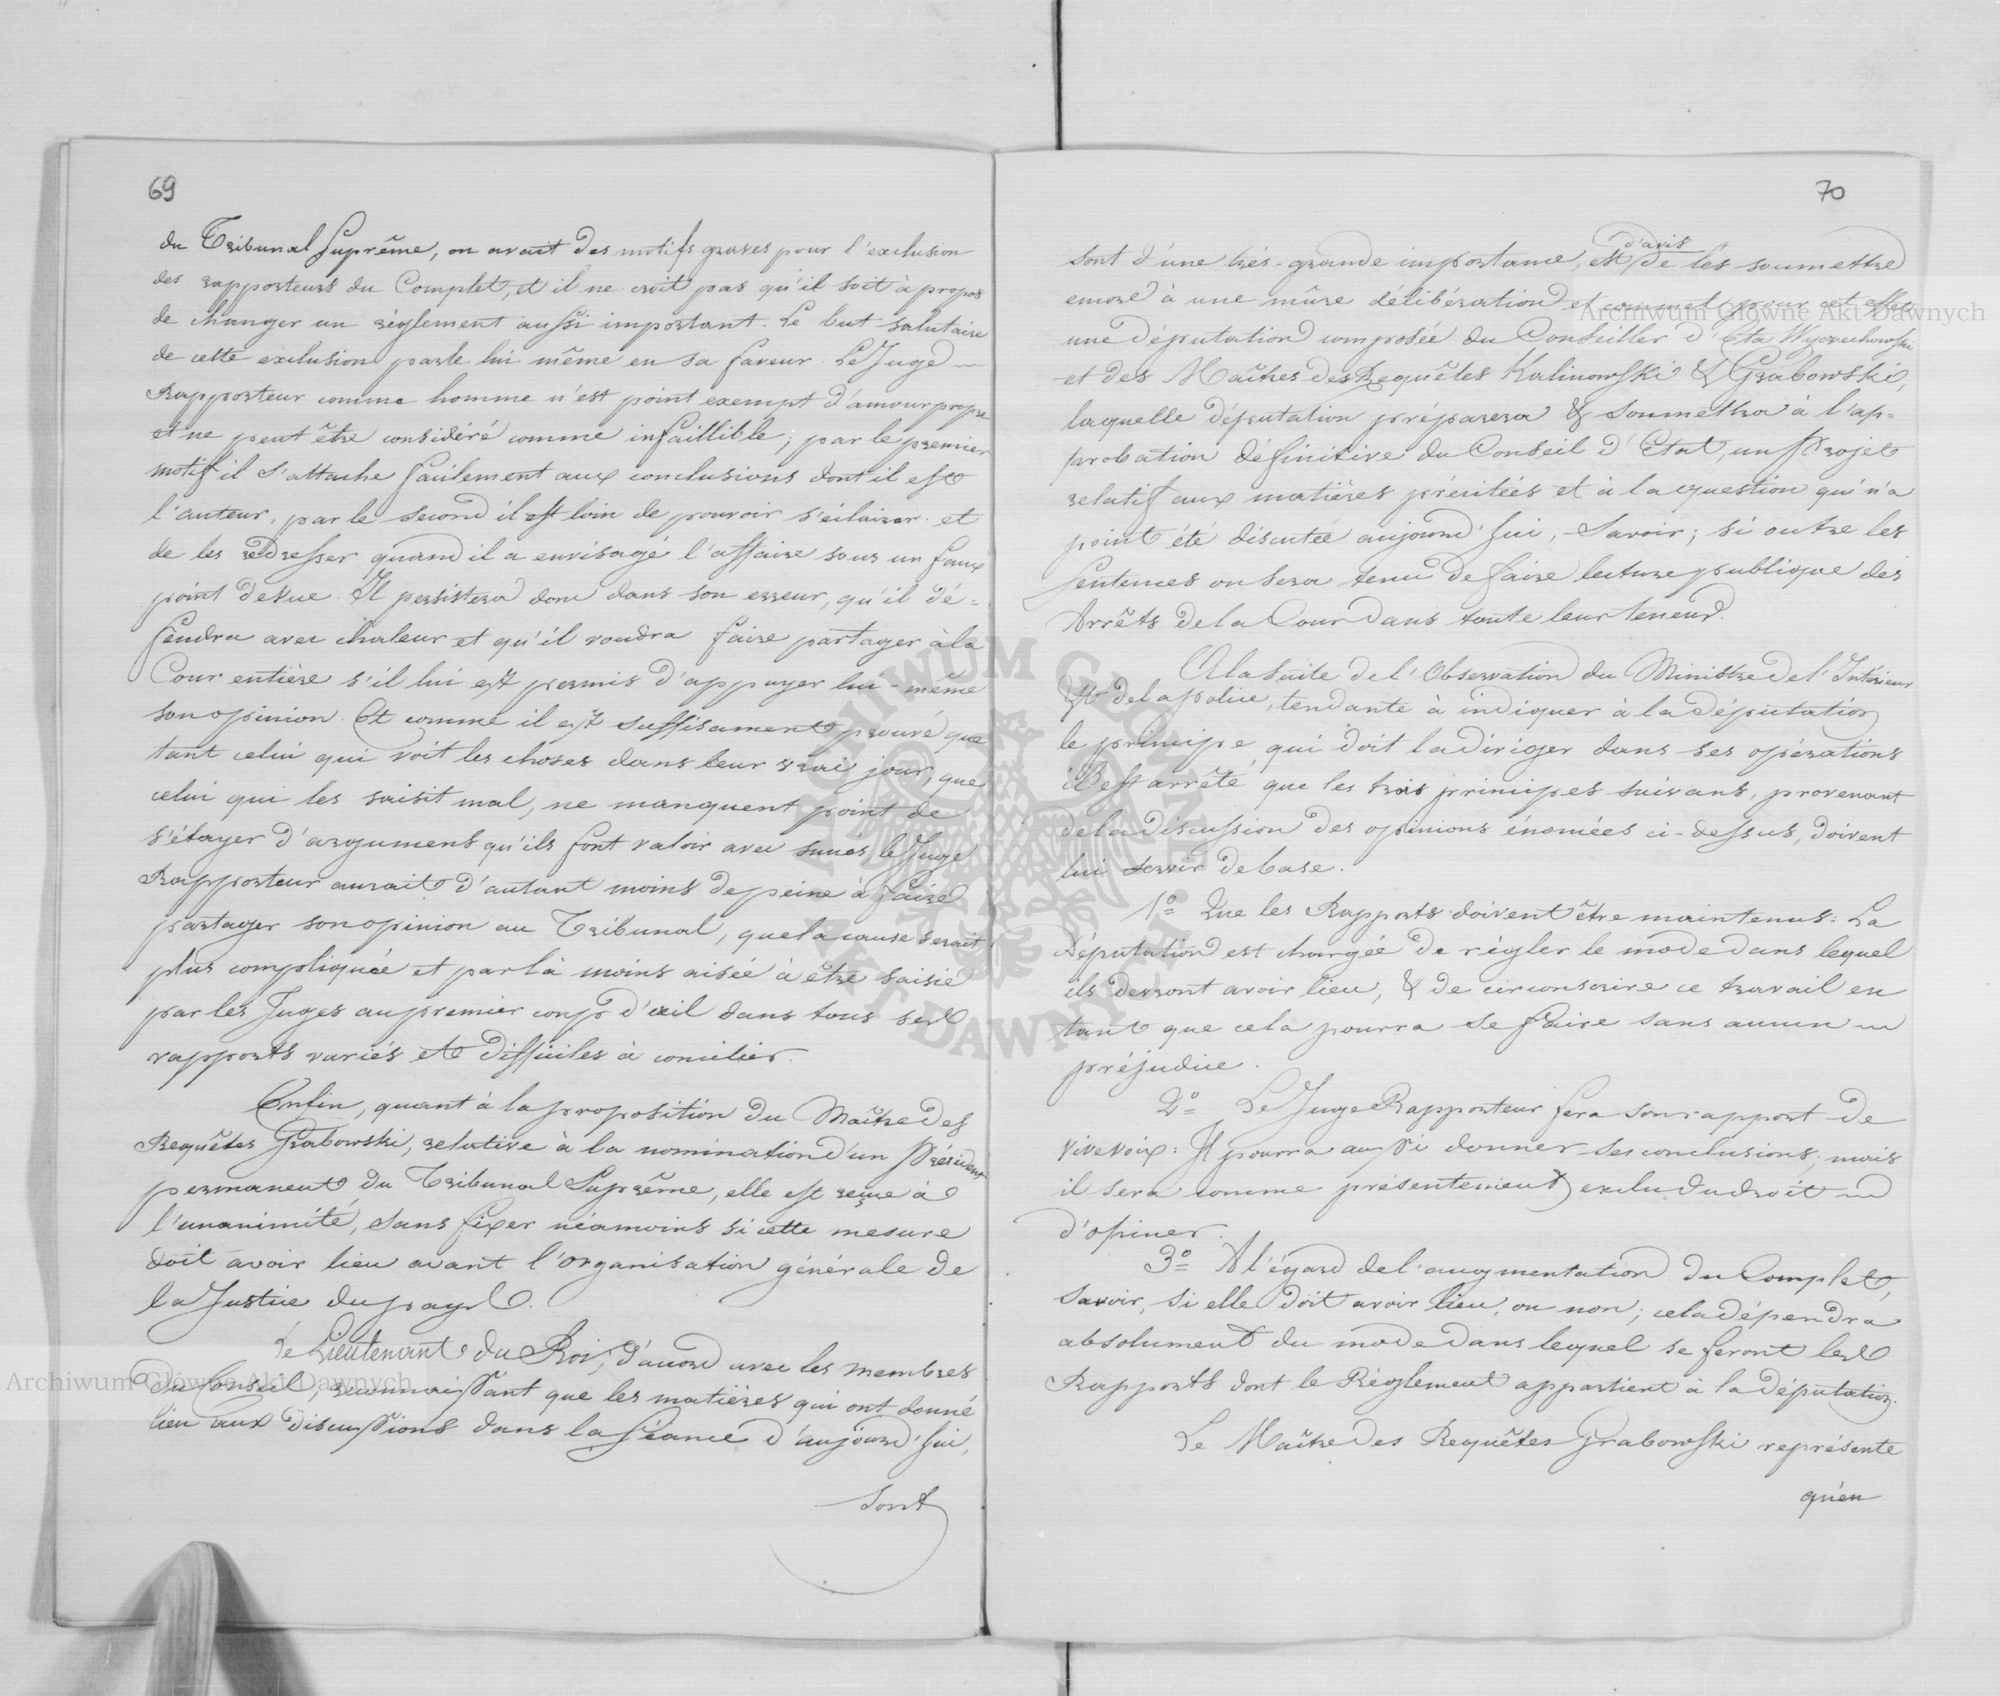 69
du Tribunal Suprême, on avait des motifs graves pour l'exclusion
des rapporteurs du Complet, et il ne croit pas qu'il soit à propos
de changer un réglement aussi important. Le but salutaire
de cette exclusion parle lui même en sa faveur. Le Juge
Rapporteur comme homme n'est point exempt d'amour propre
et ne peut être considéré comme infaillible; par le premier
motif il s'attache facilement aux conclusions dont il est
l'auteur, par le second il est loin de pouvoir s'éclairer et
de les redresser quand il a envisagé l'affaire sous un faux
point de vue. Il persistera donc dans son erreur, qu'il dé=
fendra avec chaleur et qu'il voudra faire partager à la
Cour entière s'il lui est permis d'appuyer lui-même
son opinion. Et comme il est suffisament prouvé que
tant celui qui voit les choses dans leur vrai jour, que
celui qui les saisit mal, ne manquent point de
s'étayer d'argumens qu'ils font valoir avec succés, le Juge
Rapporteur aurait d'autant moins de peine à faire
partager son opinion au Tribunal, que la cause serait
plus compliquée et par là moins aisée à être saisie
par les Juges au premier coup d'œil dans tous ses
rapports variés et difficiles à concilier.
Enfin, quant à la proposition du Maître des
Requêtes Grabowski, relative à la nomination d'un Président
permanent du Tribunal Suprême, elle est reçue à
l'unanimité, sans fixer néamoins si cette mesure
doit avoir lieu avant l'organisation générale de
la Justice du pays.
Le Lieutenant du Roi, d'accord avec les membres
du Conseil, reconnaissant que les matières qui ont donné
lieu aux discussions dans la séance d'aujourd'hui,
sont
70
d'avis
sont d'une très-grande importance, est de les soumettre
encore à une mûre délibération et commet pour cet effet
une députation composée du Conseiller d'Etat Wyczechowski
et des Maîtres des Requêtes Kalinowski & Grabowski,
laquelle députation préparera & soumettra à l'ap=
probation définitive du Conseil d'Etat, un Projet
relatif aux matières précitées et à la question qui n'a
point été discutée aujourd'hui, Savoir; si outre les
Sentences on sera tenu de faire lecture publique des
Arrêts de la Cour dans toute leur teneur.
A la suite de l'Observation du Ministre de l'Intérieur
& de la police, tendante à indiquer à la députation
le principe qui doit la diriger dans ses opérations
il est arrêté que les trois principes suivans, provenant
de la discussion des opinions énoncées ci-dessus, doivent
lui servir de base.
1º Que les Rapports doivent être maintenus: La
députation est chargée de règler le mode dans lequel
ils devront avoir lieu, & de circonscrire ce travail en
tant que cela pourra se faire sans aucun
préjudice.
2º Le Juge Rapporteur fera son rapport de
vive voix: Il pourra aussi donner ses conclusions; mais
il sera comme présentement exclu du droit
d'opiner.
3º A l'égard de l'augmentation du Complet,
savoir, si elle doit avoir lieu, ou non; cela dépendra
absolument du mode dans lequel se feront les
Rapports dont le Réglement appartient à la députation.
Le Maître des Requêtes Grabowski représente
qu'en
Archiwum Główne Akt Dawnych
Archiwum Główne Akt Dawnych
ARCHIWUM GŁÓWNE AKT DAWNYCH